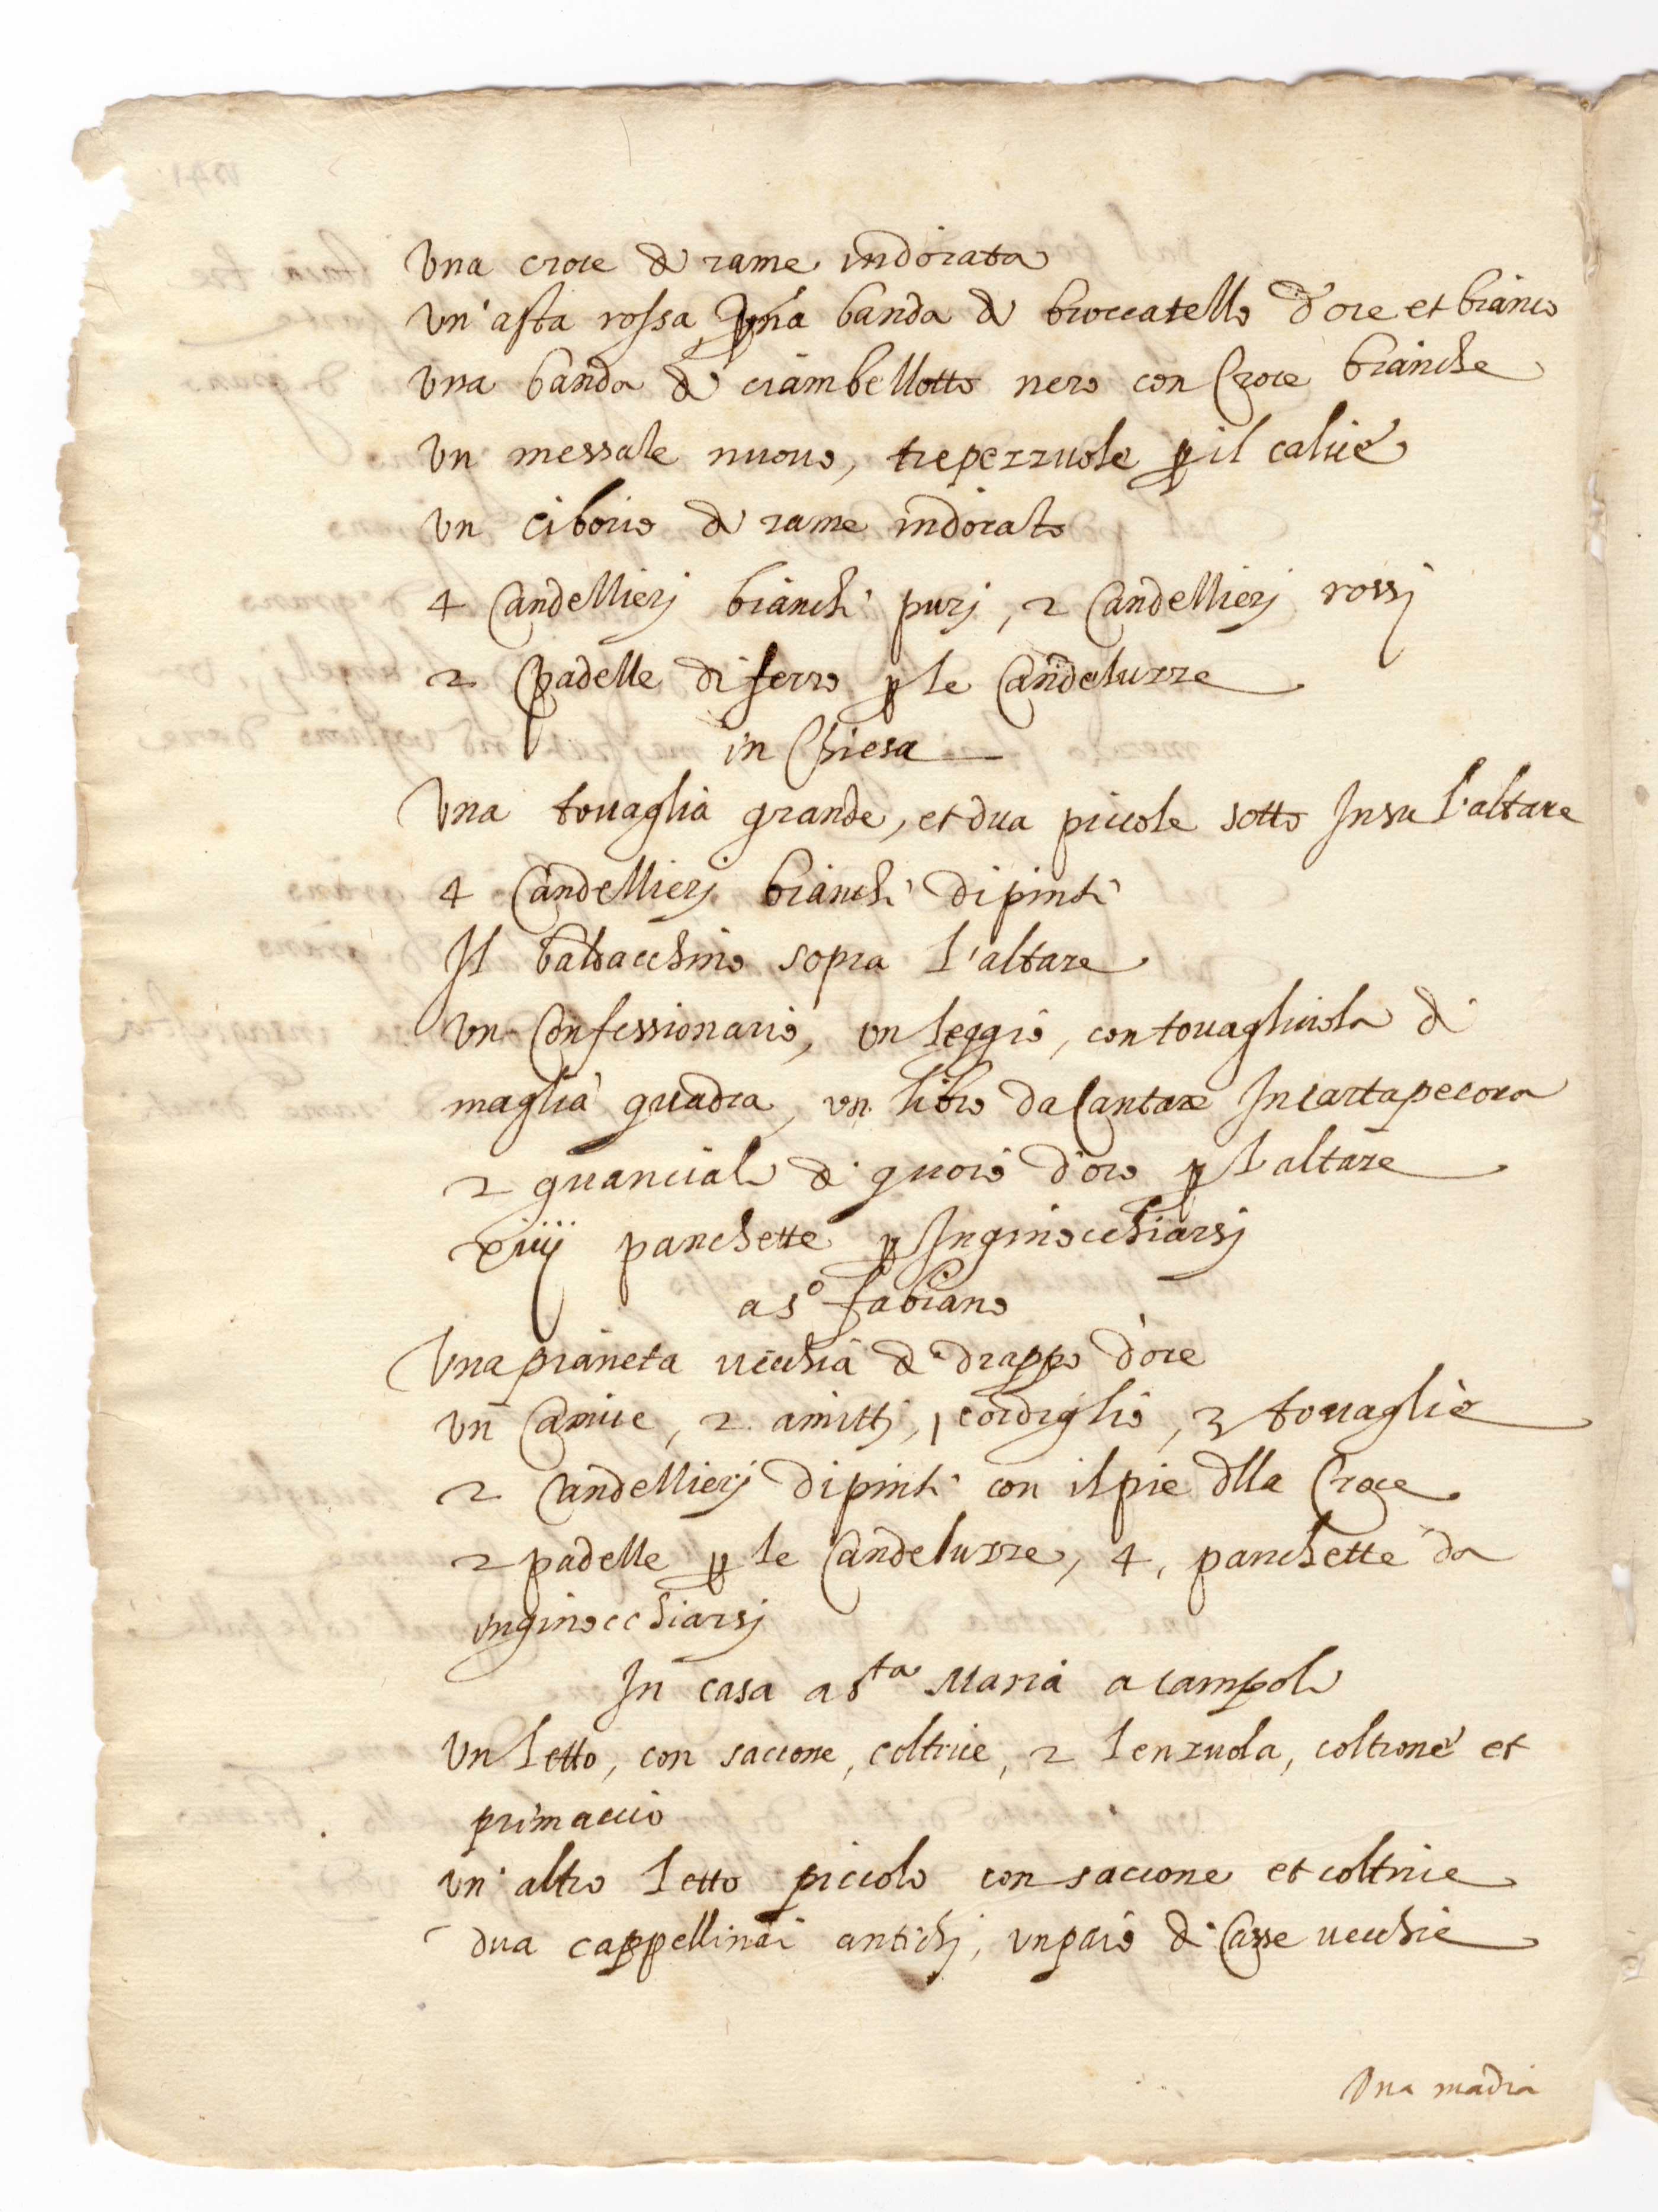 Una croce di rame indorata
Un'asta rossa, Una banda di broccatello d'oro et bianco
Una banda di ciambellotto nero con Croce bianche
Un messale nuouo, tre pezzuole p il calice
Un ciborio di rame indorato
4 Candellierj bianchi purj, 2 Candellierj rossj
2 padelle di ferro p le Candeluzze
in Chiesa
Una touaglia grande, et dua piccole sotto Insu l'altare
4 Candellierj bianchi dipinti
Il baldacchino sopra l'altare
Un Confessionario, un leggio, con touagliuola di
maglia quadra, un libro da Cantare In cartapecora
2 guanciali di quoio d'oro p l'altare
xiiij panchette p Inginocchiarsj
a s.o fabiano
Una pianeta uecchia di drappo d'oro
un Camice, 2. amittj, 1 cordiglio, 3 touaglie
2 Candellierj dipinti con il pie dlla Croce
2 padelle p le Candeluzze, 4, panchette da
inginocchiarsj
In casa a sta Maria a campoli
Un letto, con saccone, coltrice, 2 lenzuola, coltrone et
primaccio
un altro letto piccolo con saccone et coltrice
dua cappellinai antichj, un paio di Casse uecchie
Una madia